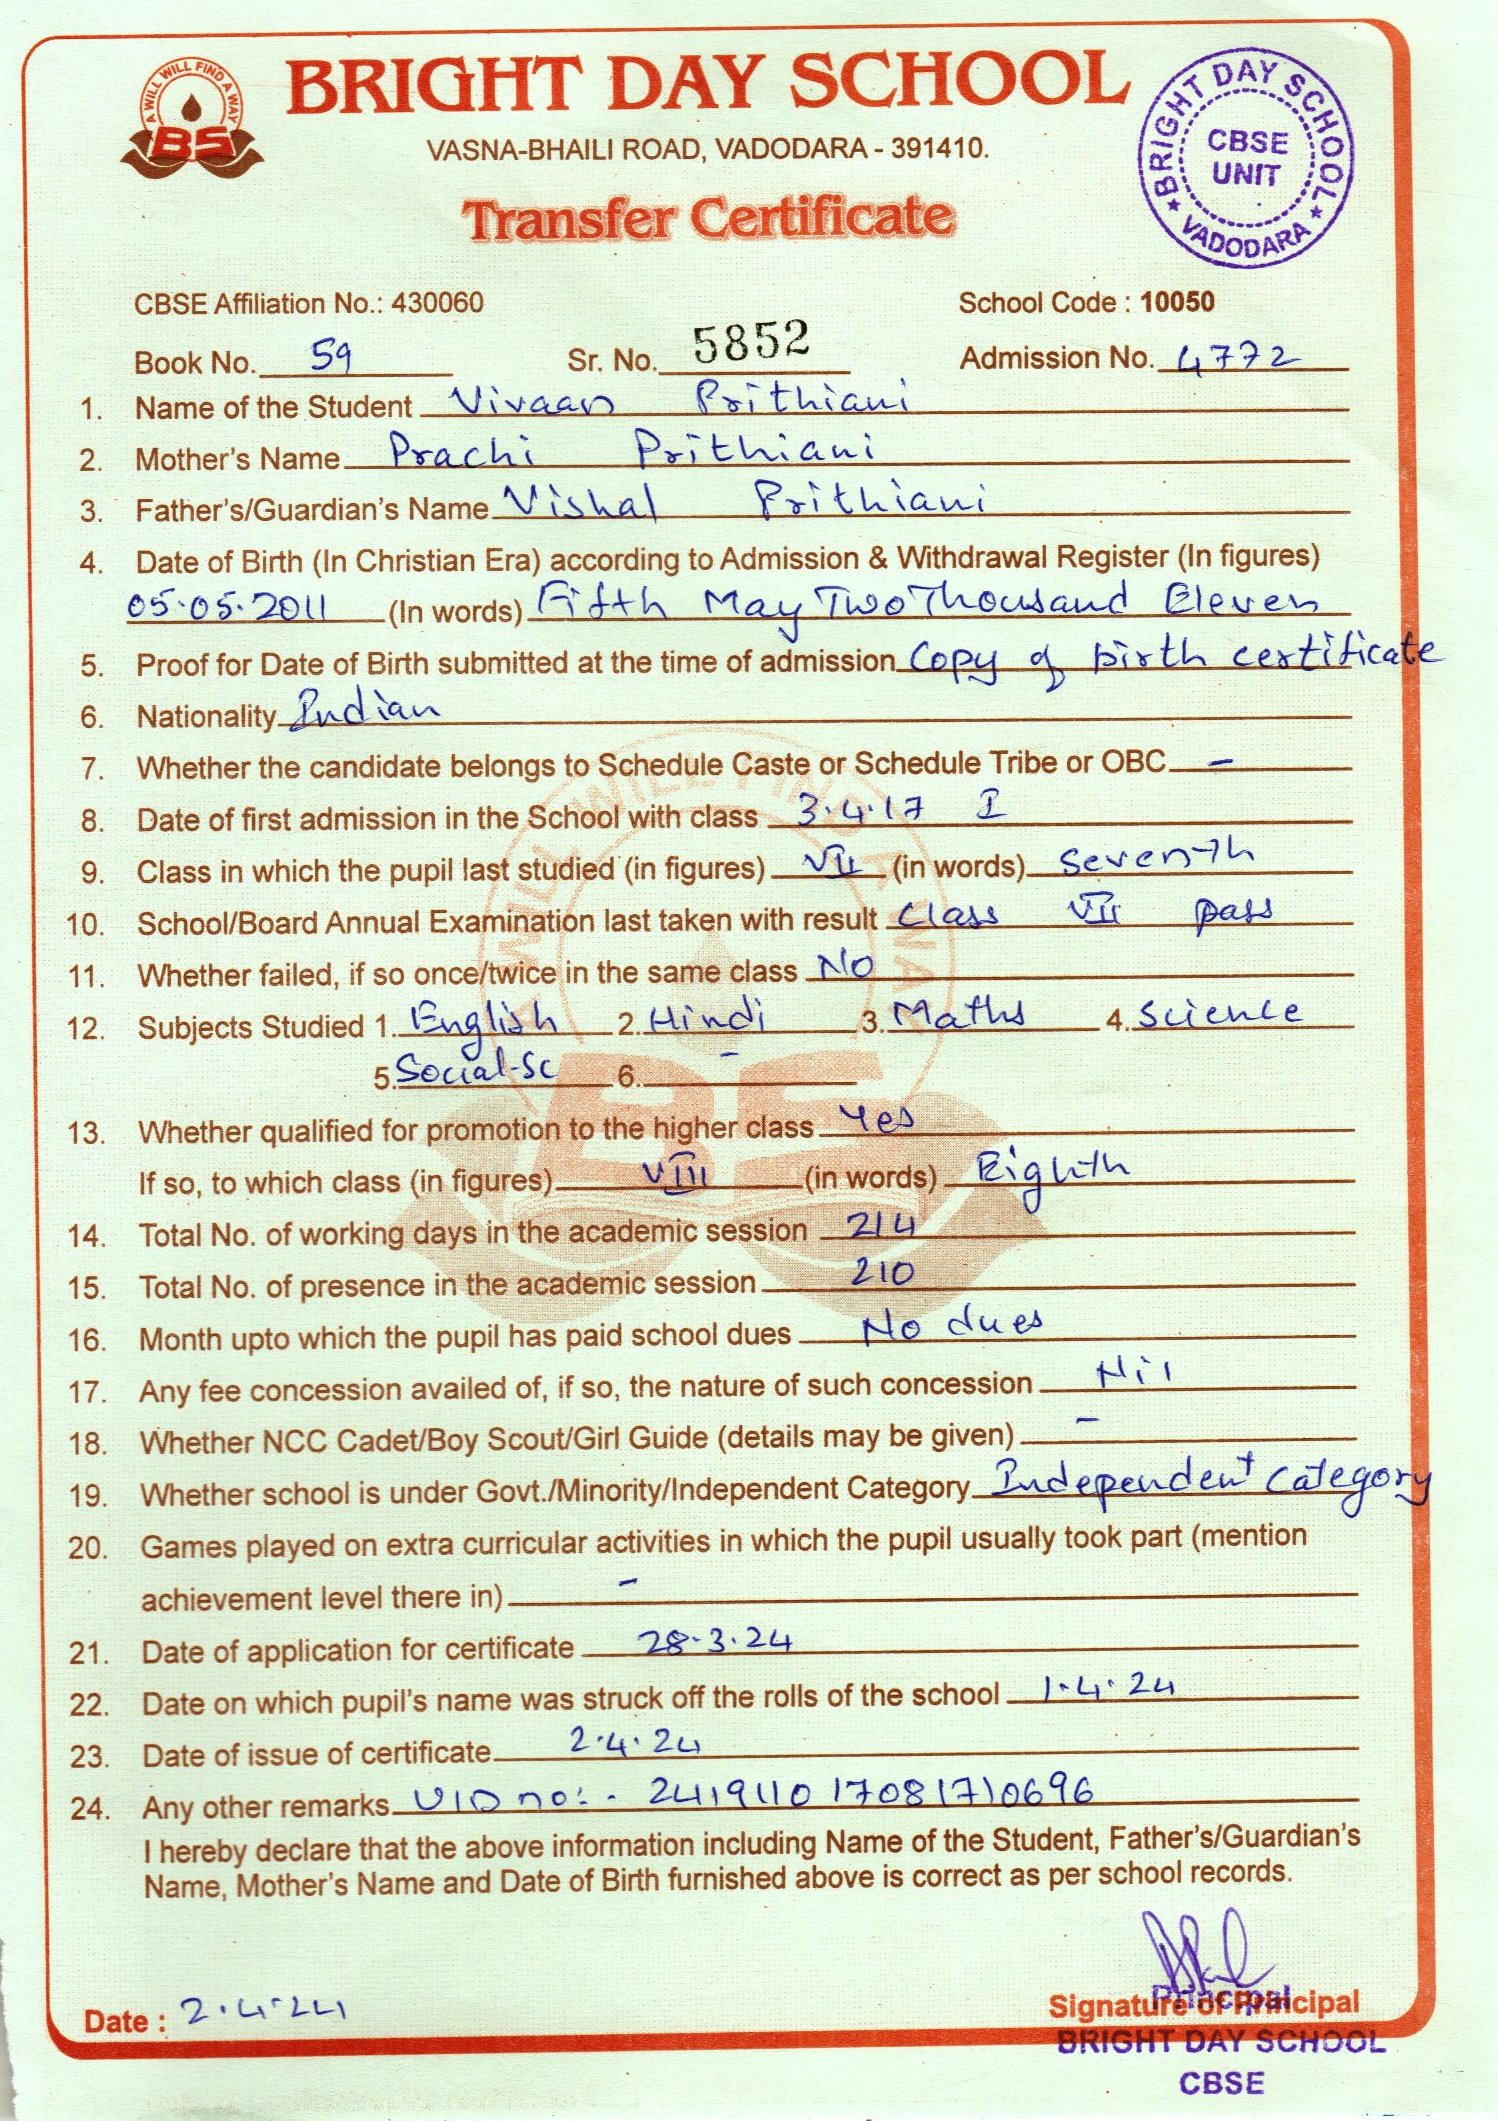 A WILL WILL FIND A WAY
BS
BRIGHT DAY SCHOOL
VASNA-BHAILI ROAD, VADODARA - 391410.
Transfer Certificate
BRIGHT DAY SCHOOL
CBSE
UNIT
★ VADODARA ★
CBSE Affiliation No.: 430060 School Code : 10050
Book No. 59 Sr. No. 5852 Admission No. 4772
1. Name of the Student Vivaan Prithiani
2. Mother's Name Prachi Prithiani
3. Father's/Guardian's Name Vishal Prithiani
4. Date of Birth (In Christian Era) according to Admission & Withdrawal Register (In figures)
05.05.2011 (In words) Fifth May Two Thousand Eleven
5. Proof for Date of Birth submitted at the time of admission Copy of birth certificate
6. Nationality Indian
7. Whether the candidate belongs to Schedule Caste or Schedule Tribe or OBC –
8. Date of first admission in the School with class 3.4.17 I
9. Class in which the pupil last studied (in figures) VII (in words) Seventh
10. School/Board Annual Examination last taken with result Class VII pass
11. Whether failed, if so once/twice in the same class No
12. Subjects Studied 1. English 2. Hindi 3. Maths 4. Science
5. Social-Sc 6. –
13. Whether qualified for promotion to the higher class Yes
If so, to which class (in figures) VIII (in words) Eighth
14. Total No. of working days in the academic session 214
15. Total No. of presence in the academic session 210
16. Month upto which the pupil has paid school dues No dues
17. Any fee concession availed of, if so, the nature of such concession Nil
18. Whether NCC Cadet/Boy Scout/Girl Guide (details may be given) –
19. Whether school is under Govt./Minority/Independent Category Independent Category
20. Games played on extra curricular activities in which the pupil usually took part (mention
achievement level there in) –
21. Date of application for certificate 28.3.24
22. Date on which pupil's name was struck off the rolls of the school 1.4.24
23. Date of issue of certificate 2.4.24
24. Any other remarks UID no:- 241911017081710696
I hereby declare that the above information including Name of the Student, Father's/Guardian's
Name, Mother's Name and Date of Birth furnished above is correct as per school records.
Date : 2.4.24
Principal
Signature of Principal
BRIGHT DAY SCHOOL
CBSE